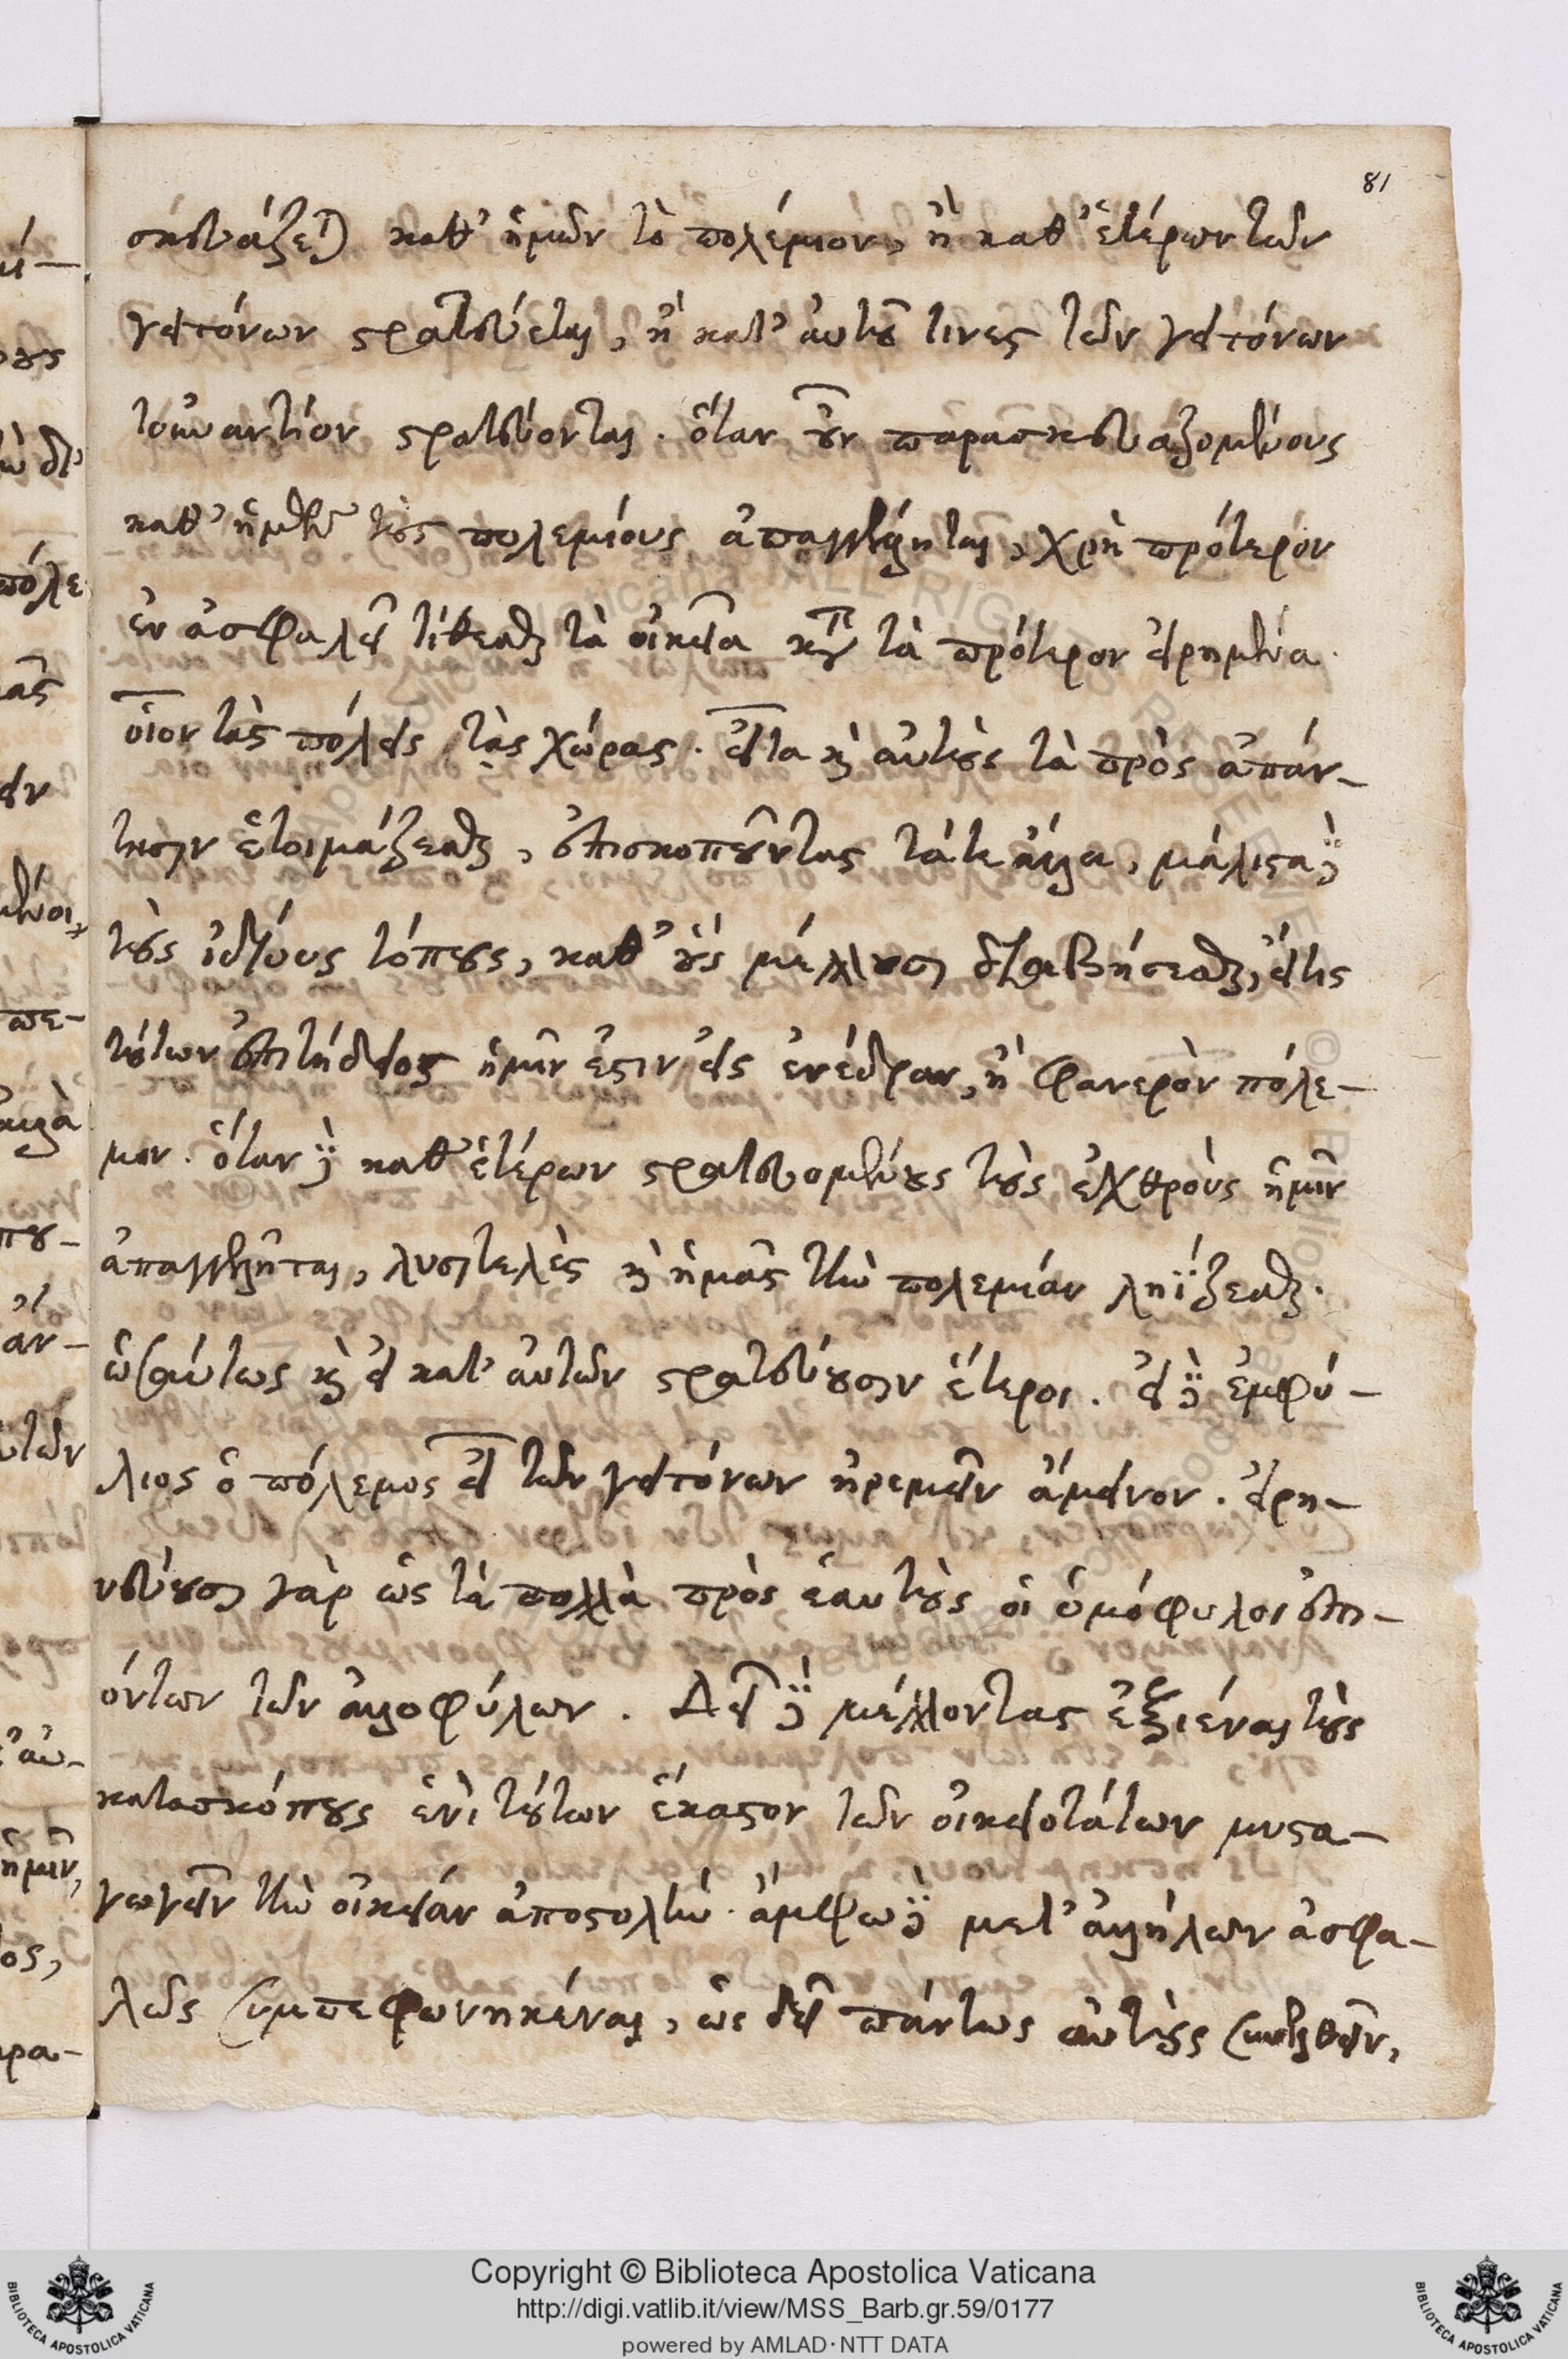 81
σκευάζεται καθ' ἡμῶν τὸ πολέμιον, ἢ καθ' ἑτέρων τῶν
γειτόνων στρατεύεται, ἢ κατ' αὐτοῦ τινες τῶν γειτόνων
τοὐναντίον στρατεύονται. ὅταν οὖν παρασκευαζομένους
καθ' ἡμῶν τοὺς πολεμίους ἀπαγγέληται, χρὴ πρότερον
ἐν ἀσφαλεῖ τίθεσθαι τὰ οἰκεῖα κατὰ τὰ πρότερον εἰρημένα.
οἷον τὰς πόλεις τὰς χώρας. εἶτα καὶ αὐτοὺς τὰ πρὸς ἀπάν-
τησιν ἑτοιμάζεσθαι, ἐπισκοποῦντας τά τε ἄλλα, μάλιστα δὲ
τοὺς ἰδίους τόπους, καθ' οὓς μέλλουσι διαβήσεσθαι, εἴ τις
τούτων ἐπιτήδειος ἡμῖν ἐστιν εἰς ἐνέδραν, ἢ φανερὸν πόλε-
μον. ὅταν δὲ καθ' ἑτέρων στρατευομένους τοὺς ἐχθροὺς ἡμῖν
ἀπαγγελῆται, λυσιτελὲς καὶ ἡμᾶς τὴν πολεμίαν ληΐζεσθαι.
ὡσαύτως καὶ εἰ κατ' αὐτῶν στρατεύουσιν ἕτεροι. εἰ δὲ ἐμφύ-
λιος ὁ πόλεμος εἴη τῶν γειτόνων ἠρεμεῖν ἄμεινον. εἰρη-
νεύουσι γὰρ ὡς τὰ πολλὰ πρὸς ἑαυτοὺς οἱ ὁμόφυλοι ἐπι-
όντων τῶν ἀλλοφύλων. Δεῖ δὲ μέλλοντας ἐξιέναι τοὺς
κατασκόπους ἑνὶ τούτων ἕκαστον τῶν οἰκειοτάτων μυστα-
γωγεῖν τὴν οἰκείαν ἀποστολήν. ἄμφω δὲ μετ' ἀλλήλων ἀσφα-
λῶς συμπεφωνηκέναι, ὡς δεῖ πάντως αὐτοὺς συνελθεῖν,
Copyright © Biblioteca Apostolica Vaticana
http://digi.vatlib.it/view/MSS_Barb.gr.59/0177
powered by AMLAD·NTT DATA